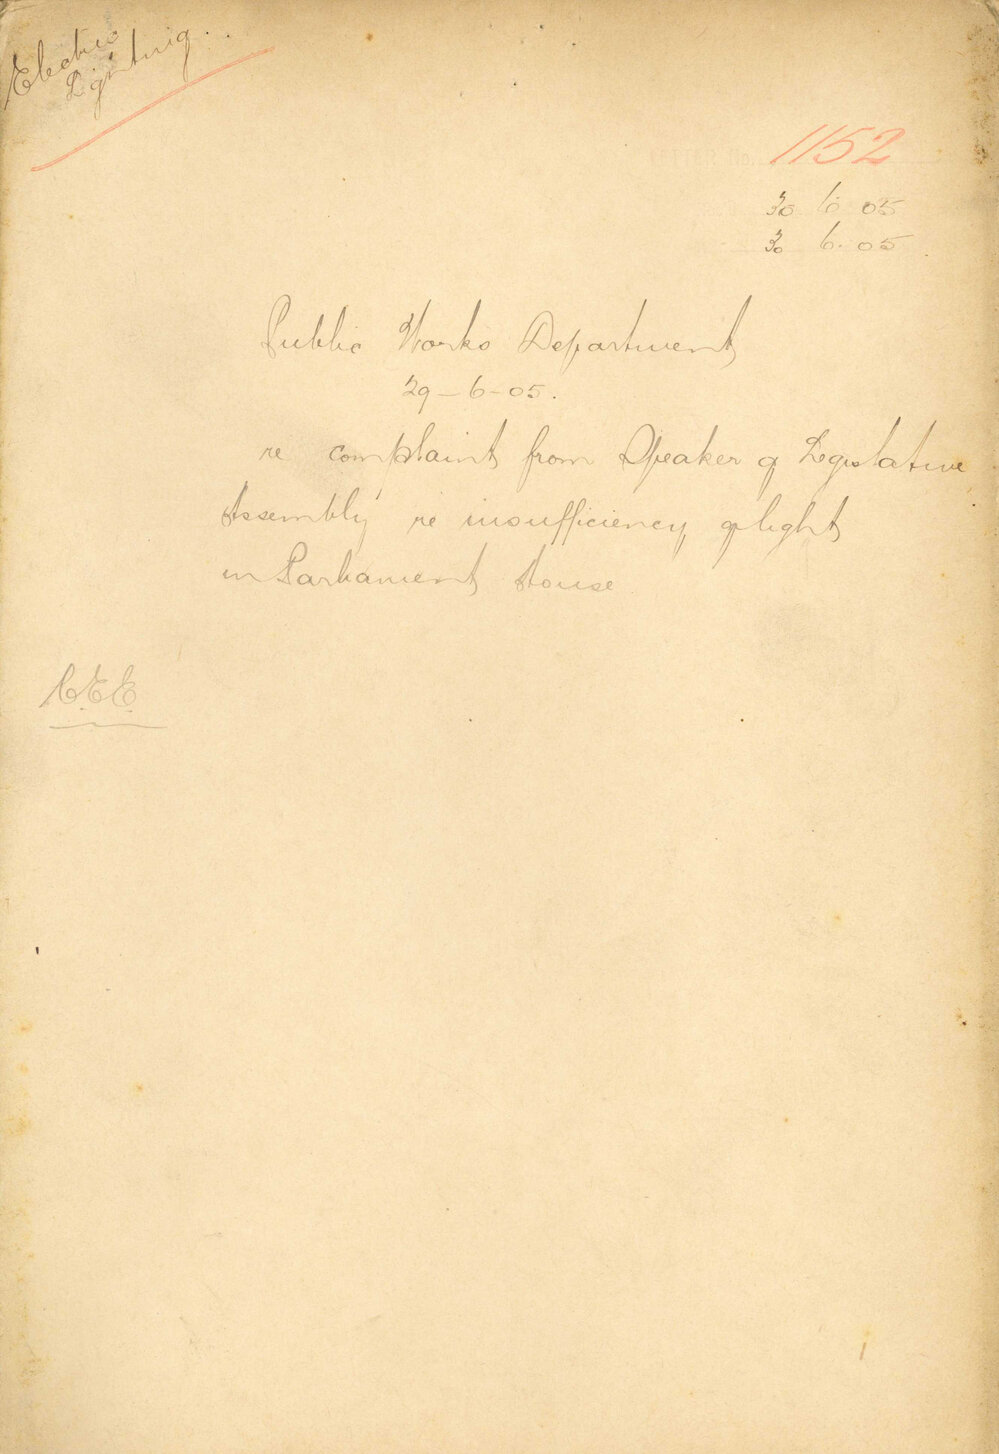 Electric
Lighting
1152
30 6 05
30 6. 05
Public Works Department
29-6-05.
re complaint from Speaker of Legislative
Assembly re insufficiency of light
in Parliament House
C.E.E.